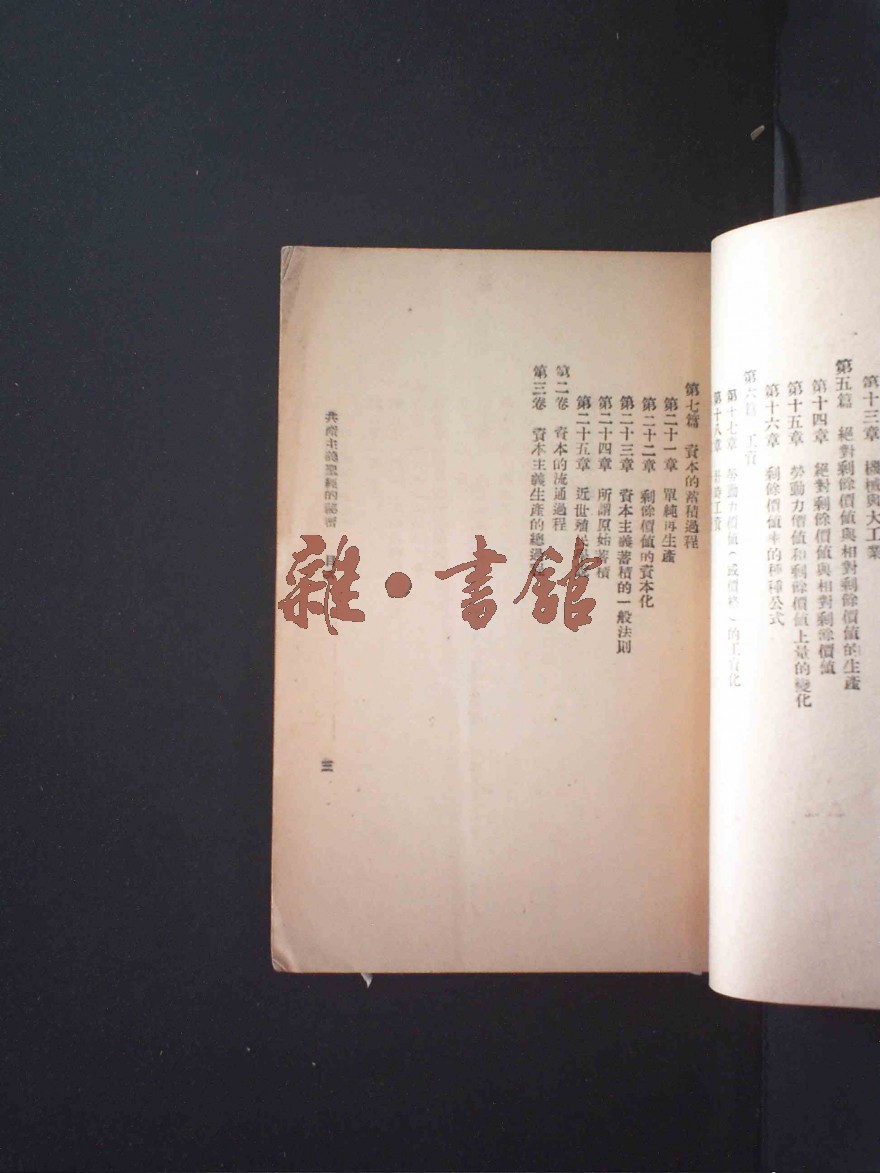 第十三章 機械與大工業
第五篇 絕對剩餘價値與相對剩餘價値的生產
第十四章 絕對剩餘價値與相對剩餘價値
第十五章 勞動力價値和剩餘價値上量的變化
第十六章 剩餘價値率的種種公式
第六篇 工資
第十七章 勞動力價値(或價格)的工資化
第十八章 工資
第七篇 資本的蓄積過程
第二十一章 單純再生產
第二十二章 剩餘價値的資本化
第二十三章 資本主義蓄積的一般法則
第二十四章 所謂原始蓄積
第二十五章 近世殖
第二卷 資本的流通過程
第三卷 資本主義生產的總過程
共產主義聖經的秘密 目
三
雜·書館